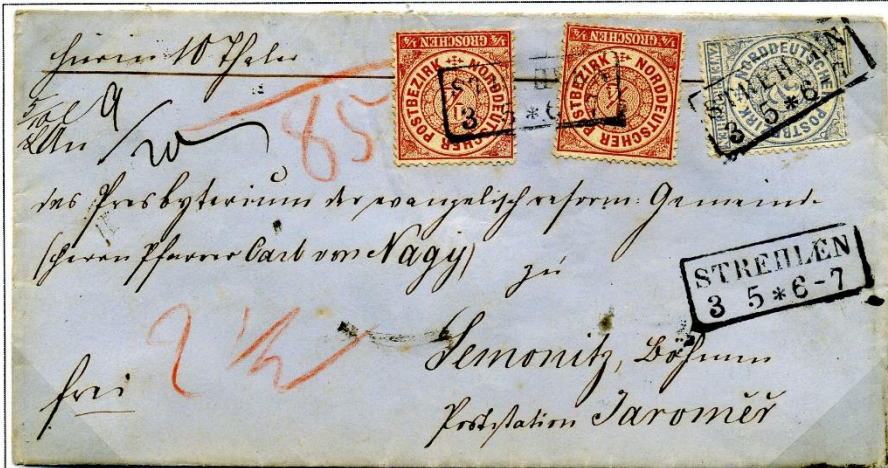 hierin 10 Thaler
¼ GROSCHEN ¼
NORDDEUTSCHER POSTBEZIRK
¼ GROSCHEN ¼
NORDDEUTSCHER POSTBEZIRK
NORDDEUTSCHER POSTBEZIRK
STREHLEN
3 5 * 6-7
9
85
des Presbyterium der evangelisch reform: Gemeinde
(Herrn Pfarrer Carl von Nagy)
zu
STREHLEN
3 5 * 6-7
2 ½
Semonitz, Böhmen
frei
Poststation Jaroměř